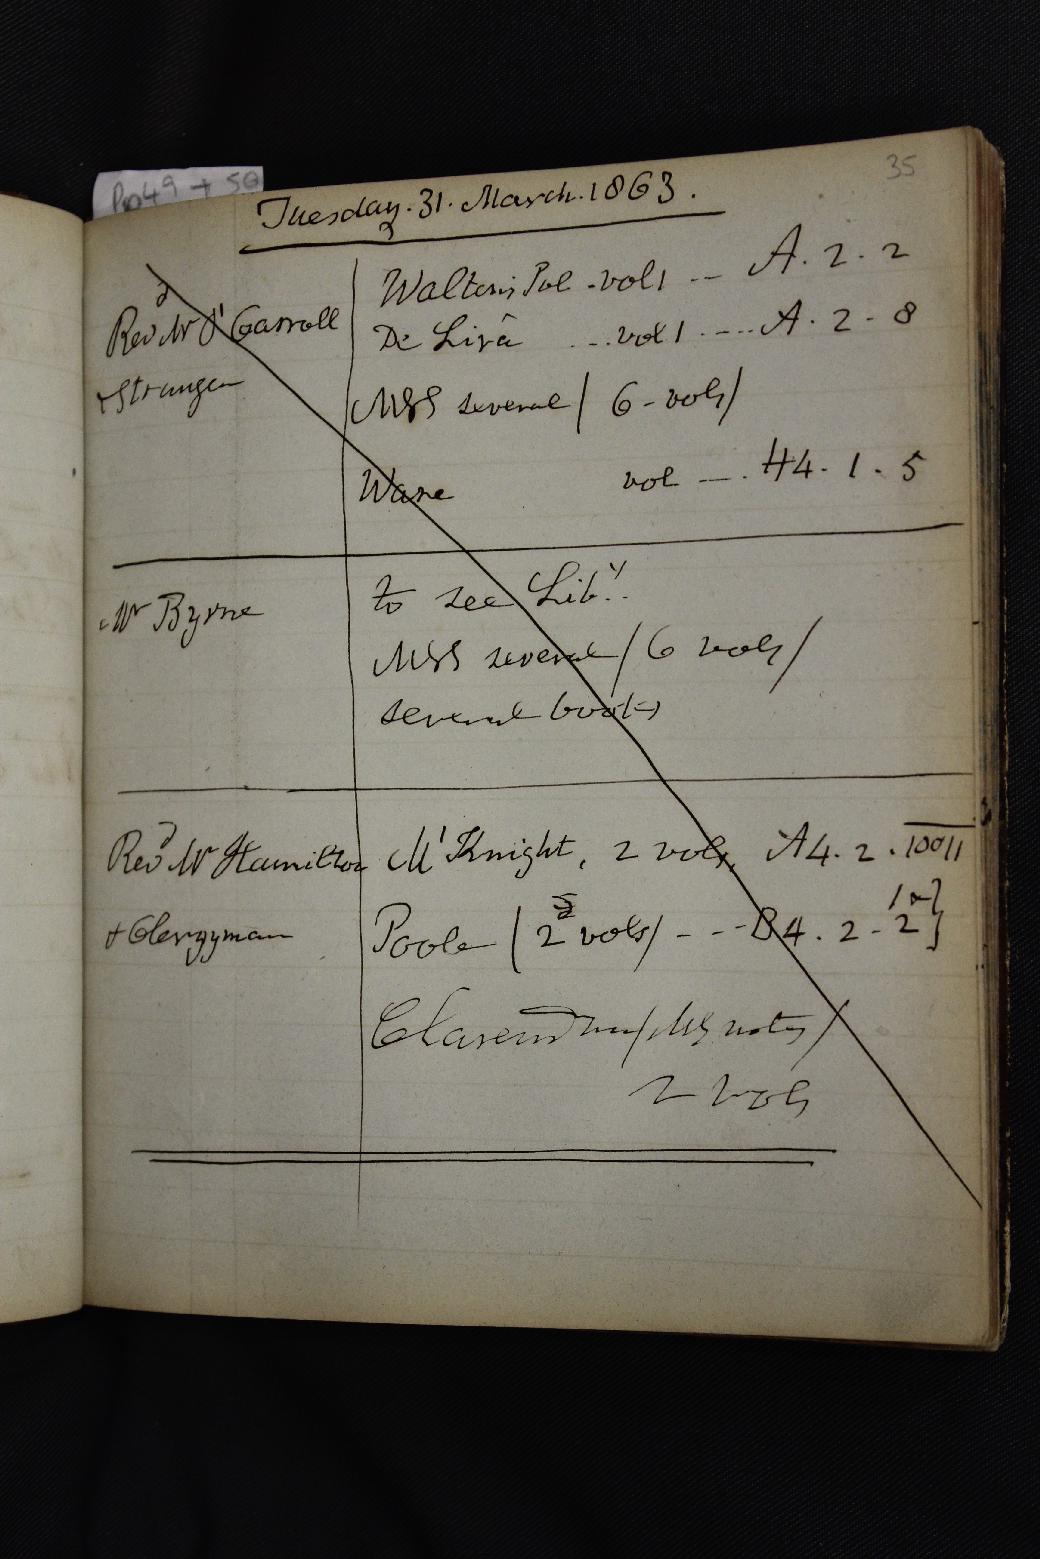 35
pp 49 + 50
Tuesday. 31. March. 1863.
Revd Mr O'Carroll
+ Stranger
Walton's Pol. vol 1 -- A. 2. 2
De Lirâ ... vol 1 ---- A. 2 - 8
MSS several / 6 - vols /
Ware vol --- . H4. 1 - 5
Mr Byrne
to see Liby.
MSS several / 6 vols /
several books
Revd Mr Hamilton
+ Clergyman
M'Knight, 2 vols, A4. 2. 10 11
Poole ( 2 vols ) --- B4. 2 - 2
/ MS notes /
2 vols